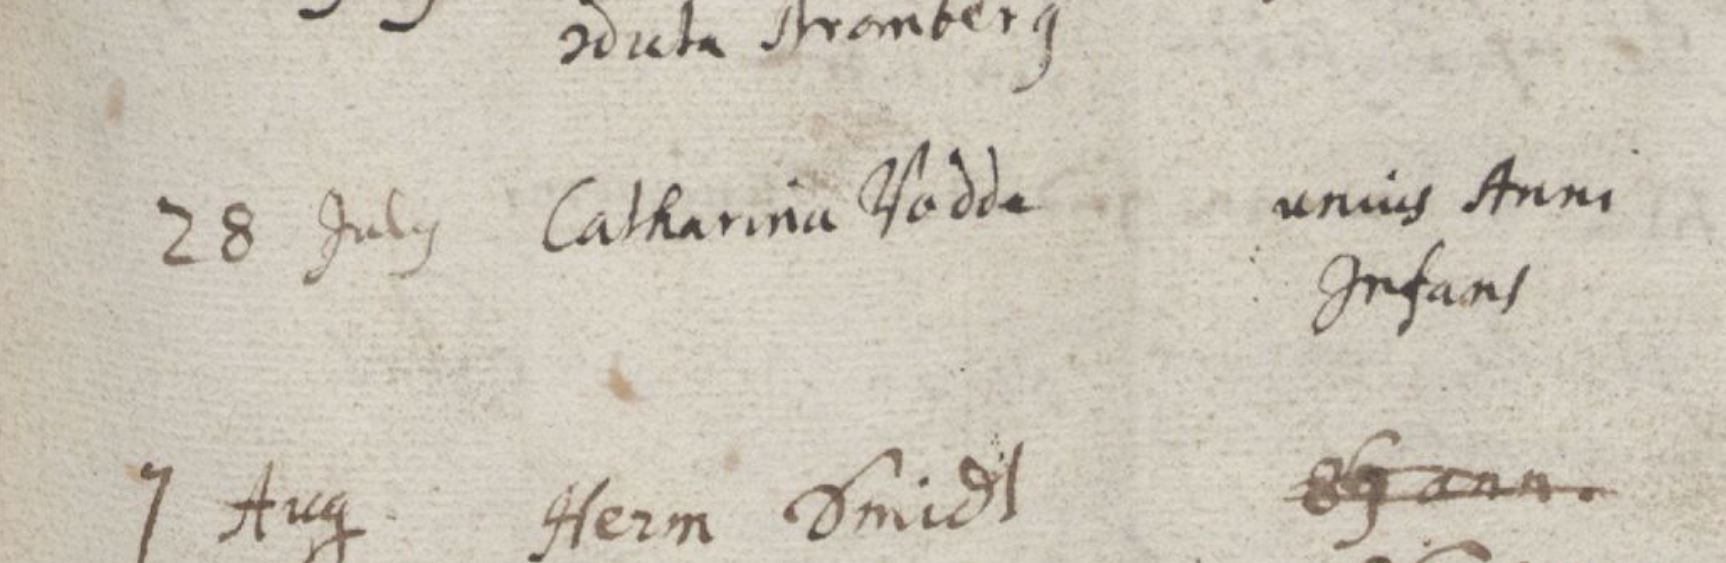 viduta Stromberg
28 July Catharina Vodde unius Anni
Infans
7 Aug Herm Smidt